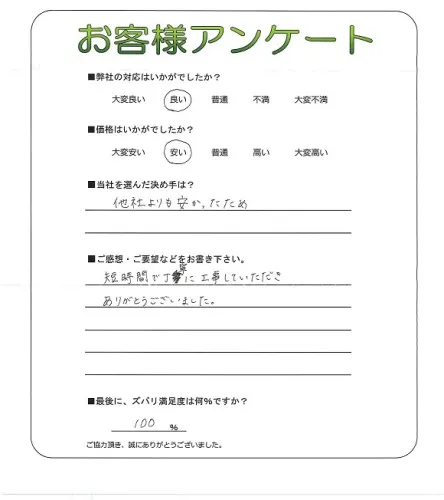 お客様アンケート
■弊社の対応はいかがでしたか？
大変良い 良い 普通 不満 大変不満
■価格はいかがでしたか？
大変安い 安い 普通 高い 大変高い
■当社を選んだ決め手は？
他社よりも安かったため
■ご感想・ご要望などをお書き下さい。
短時間で丁寧に工事していただき
ありがとうございました。
■最後に、ズバリ満足度は何%ですか？
100 %
ご協力頂き、誠にありがとうございました。